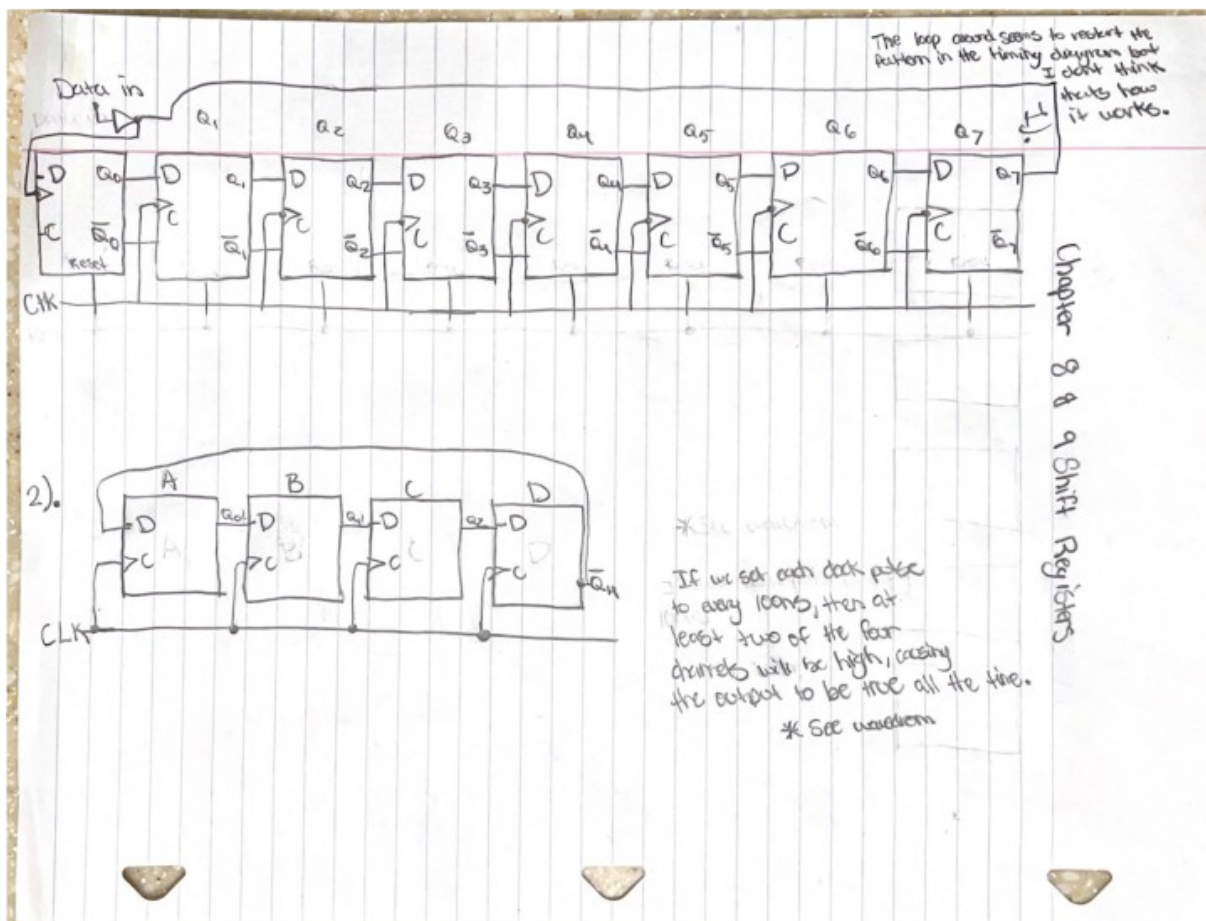 The loop around seems to restart the
pattern in the timing diagram but
I dont think
thats how
it works.
Data in
Q1 Q2 Q3 Q4 Q5 Q6 Q7
D Q0 D Q1 D Q2 D Q3 D Q4 D Q5 D Q6 D Q7
C C C C C C C C
Q̅0 Q̅1 Q̅2 Q̅3 Q̅4 Q̅5 Q̅6 Q̅7
Reset
Clk
Chapter 8 & 9 Shift Registers
2).
A B C D
D Q0 D Q1 D Q2 D
C C C C
CLK
*See
If we set each clock pulse
to every 100ns, then at
least two of the four
channels will be high, causing
the output to be true all the time.
* See